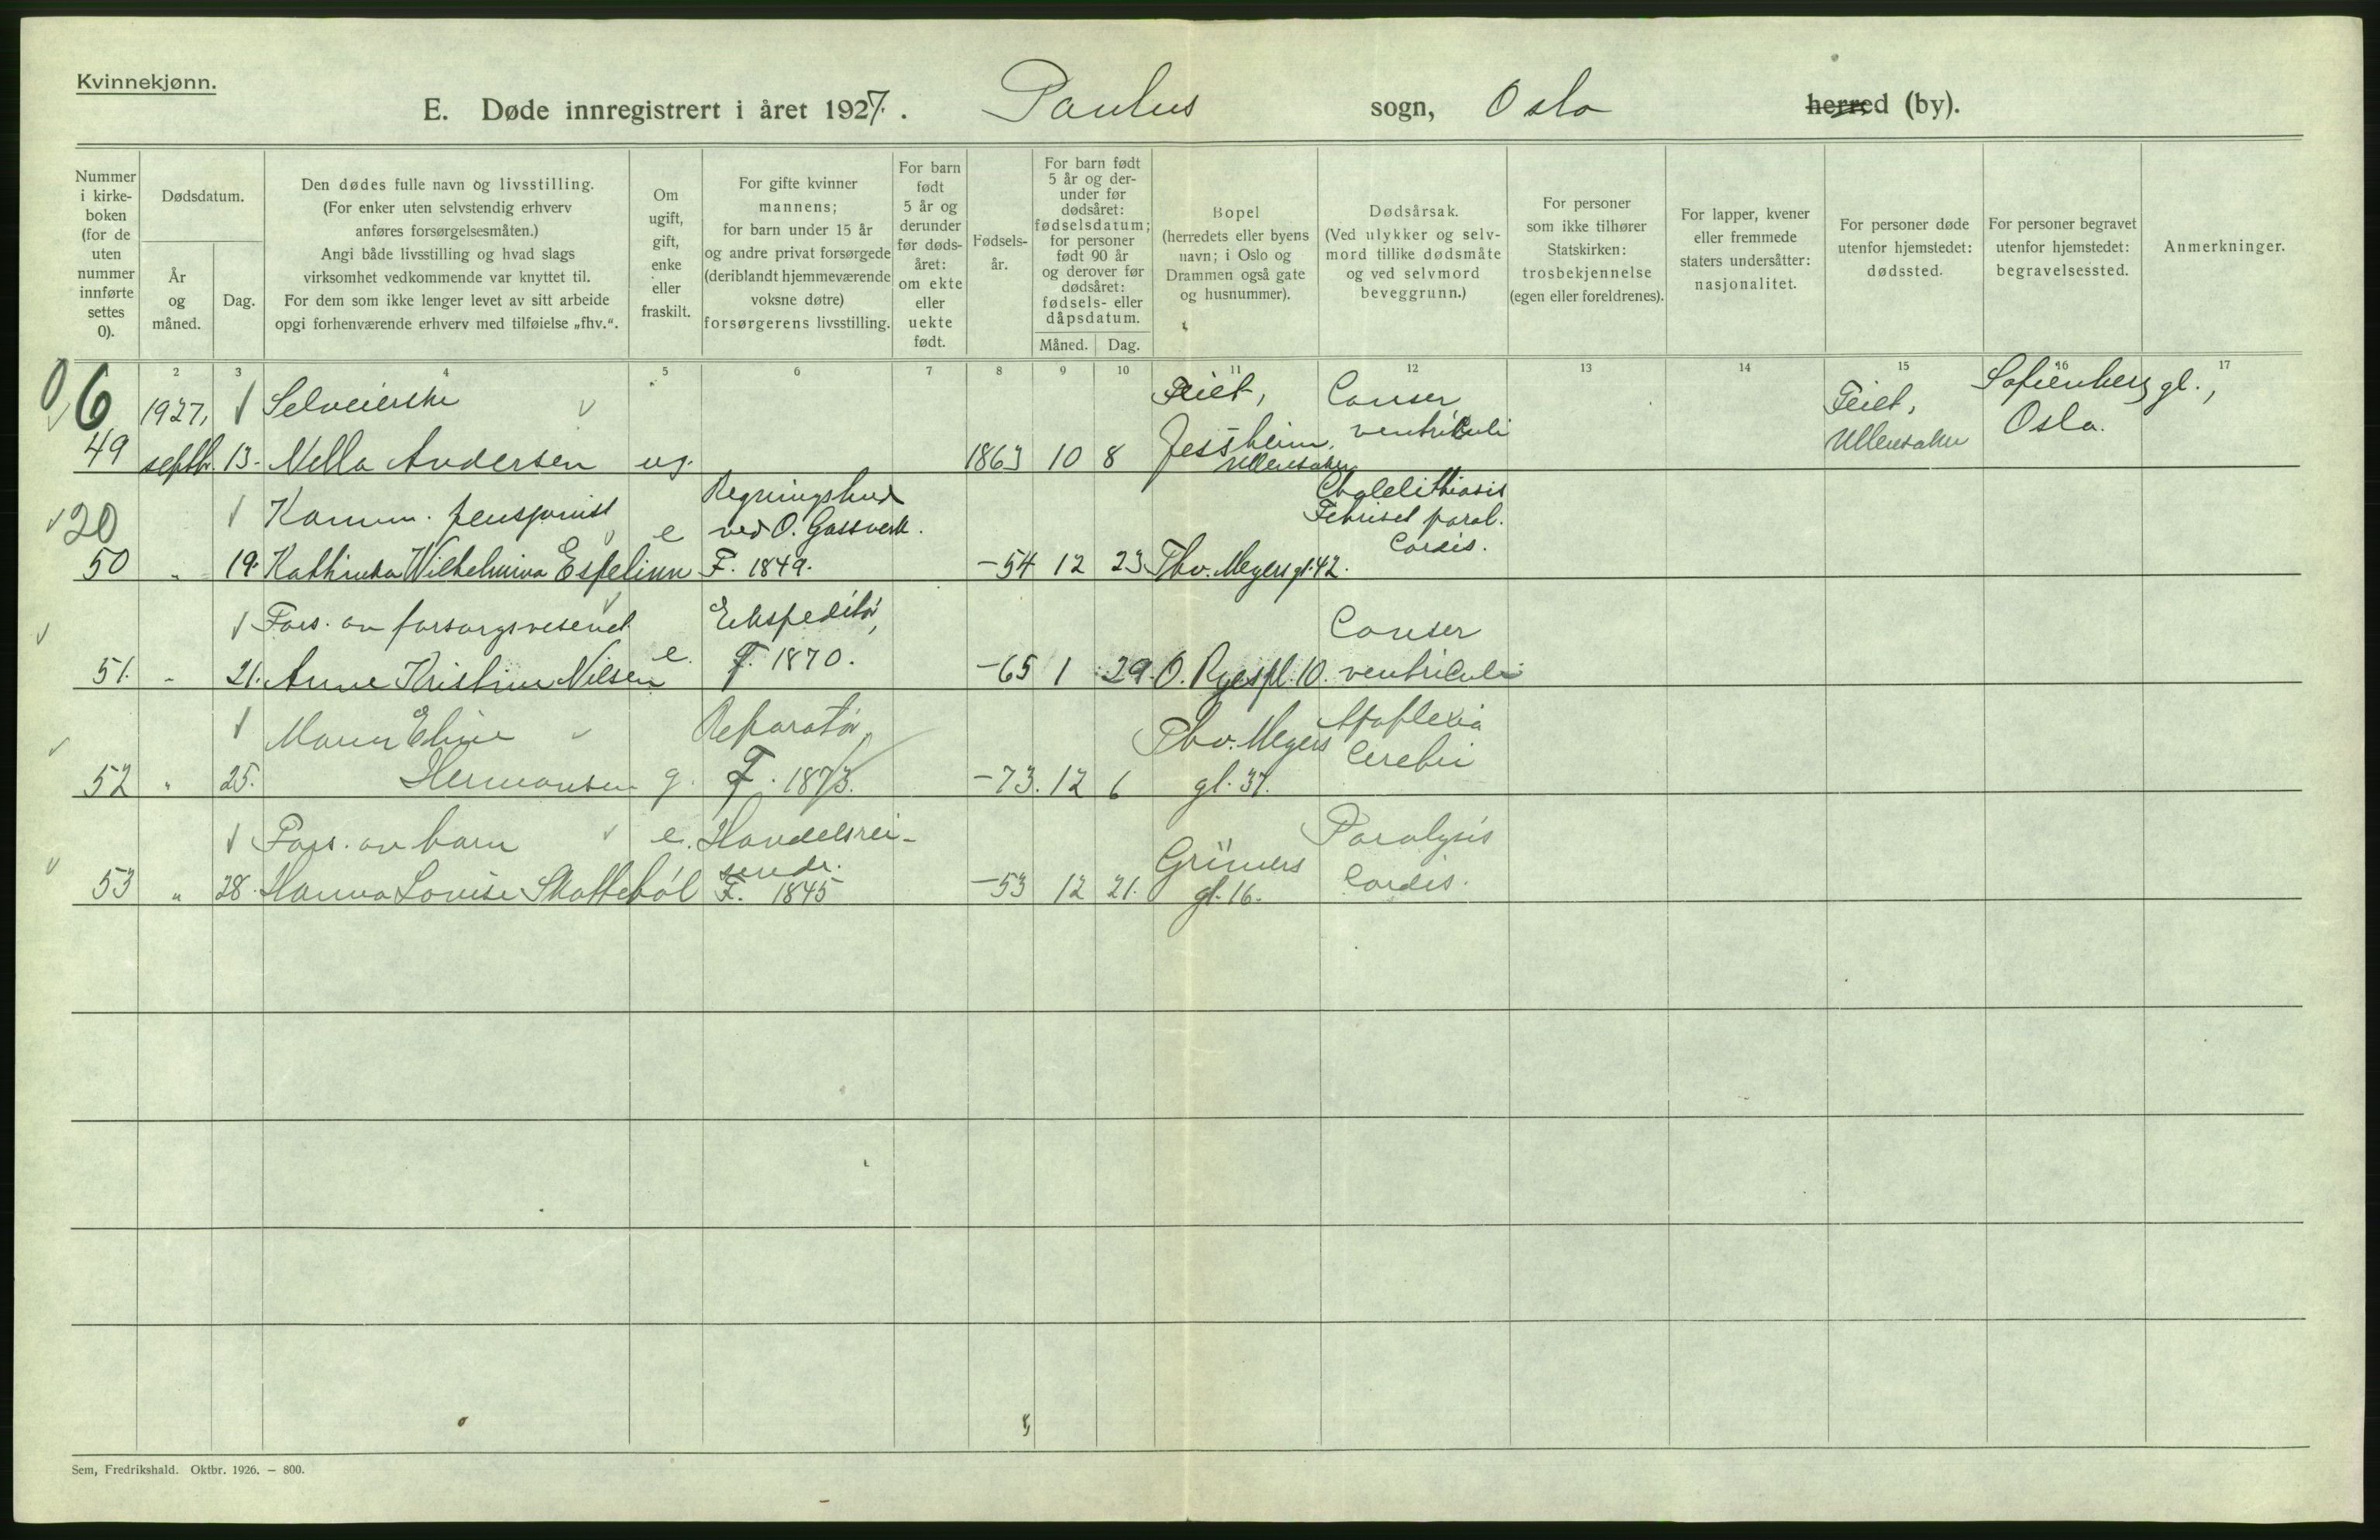 Kvinnekjønn.
E. Døde innregistrert i året 1927. Paulus sogn, Oslo herred (by).
Nummer i kirke- boken (for de uten nummer innførte settes 0).
Dødsdatum.
År og måned.
Dag.
Den dødes fulle navn og livsstilling.
(For enker uten selvstendig erhverv
anføres forsørgelsesmåten.)
Angi både livsstilling og hvad slags
virksomhet vedkommende var knyttet til.
For dem som ikke lenger levet av sitt arbeide
opgi forhenværende erhverv med tilføielse „fhv.“.
Om ugift, gift, enke eller fraskilt.
For gifte kvinner
mannens;
for barn under 15 år
og andre privat forsørgede
(deriblandt hjemmeværende
voksne døtre)
forsørgerens livsstilling.
For barn født 5 år og derunder før døds- året: om ekte eller uekte født.
Fødsels- år.
For barn født
5 år og der-
under før
dødsåret:
fødselsdatum;
for personer
født 90 år
og derover før
dødsåret:
fødsels- eller
dåpsdatum.
Måned. Dag.
Bopel
(herredets eller byens
navn; i Oslo og
Drammen også gate
og husnummer).
Dødsårsak.
(Ved ulykker og selv-
mord tillike dødsmåte
og ved selvmord
beveggrunn.)
For personer
som ikke tilhører
Statskirken:
trosbekjennelse
(egen eller foreldrenes).
For lapper, kvener
eller fremmede
staters undersåtter:
nasjonalitet.
For personer døde
utenfor hjemstedet:
dødssted.
For personer begravet
utenfor hjemstedet:
begravelsessted.
Anmerkninger.
2 3 4 5 6 7 8 9 10 11 12 13 14 15 16 17
06 1927, Selveierske Teiet, Cancer Teiet, Sofienberg gl.,
49 septb. 13. Nella Andersen ug. 1863 10 8 Jessheim, Ullensaker ventriculi Ullensaker Oslo.
20 Komm. pensjonist e Regningsbud ved O. Gassverk. Cholelithiasis Febrisel paral.
50 " 19. Kathinka Wilhelmina Espelinn F. 1849. -54 12 23 Thv. Meyers gt. 42. Cordis.
Fors. av forsorgsvesenet Ekspeditør, Cancer
51. " 21. Anne Kristine Nilsen e. F. 1870. -65 1 29. O. Ryes pl. 10. ventriculi
Maren Eline Reparatør, Thv. Meyers Apoplexia
52 " 25. Hermansen g. F. 1873. -73. 12 6 gt. 37. Cerebri
Fors. av barn e. Handelsrei- Grüners Paralysis
sende.
53 " 28. Hanna Lovise Skattebøl F. 1845 -53 12 21. gt. 16. Cordis.
Sem, Fredrikshald. Oktbr. 1926. — 800.